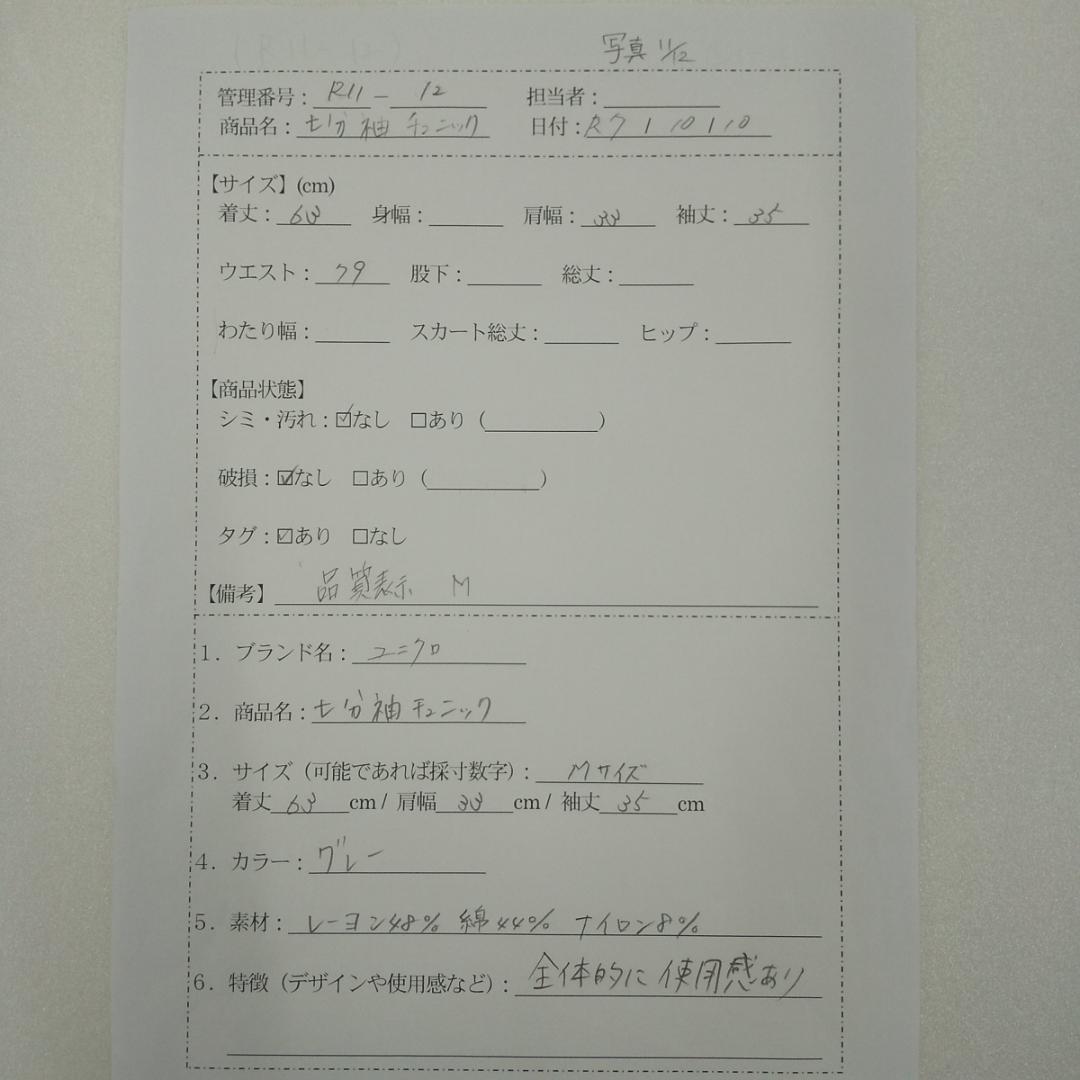 写真 11/12
管理番号：R11 － 12 担当者：
商品名：七分袖チュニック 日付：R7 / 10 / 10
【サイズ】(cm)
着丈：63 身幅： 肩幅：33 袖丈：35
ウエスト：79 股下： 総丈：
わたり幅： スカート総丈： ヒップ：
【商品状態】
シミ・汚れ：☑なし □あり（ ）
破損：☑なし □あり（ ）
タグ：☑あり □なし
【備考】 品質表示 M
1．ブランド名：ユニクロ
2．商品名：七分袖チュニック
3．サイズ（可能であれば採寸数字）：Mサイズ
着丈 63 cm / 肩幅 33 cm / 袖丈 35 cm
4．カラー：グレー
5．素材：レーヨン48% 綿44% ナイロン8%
6．特徴（デザインや使用感など）：全体的に使用感あり